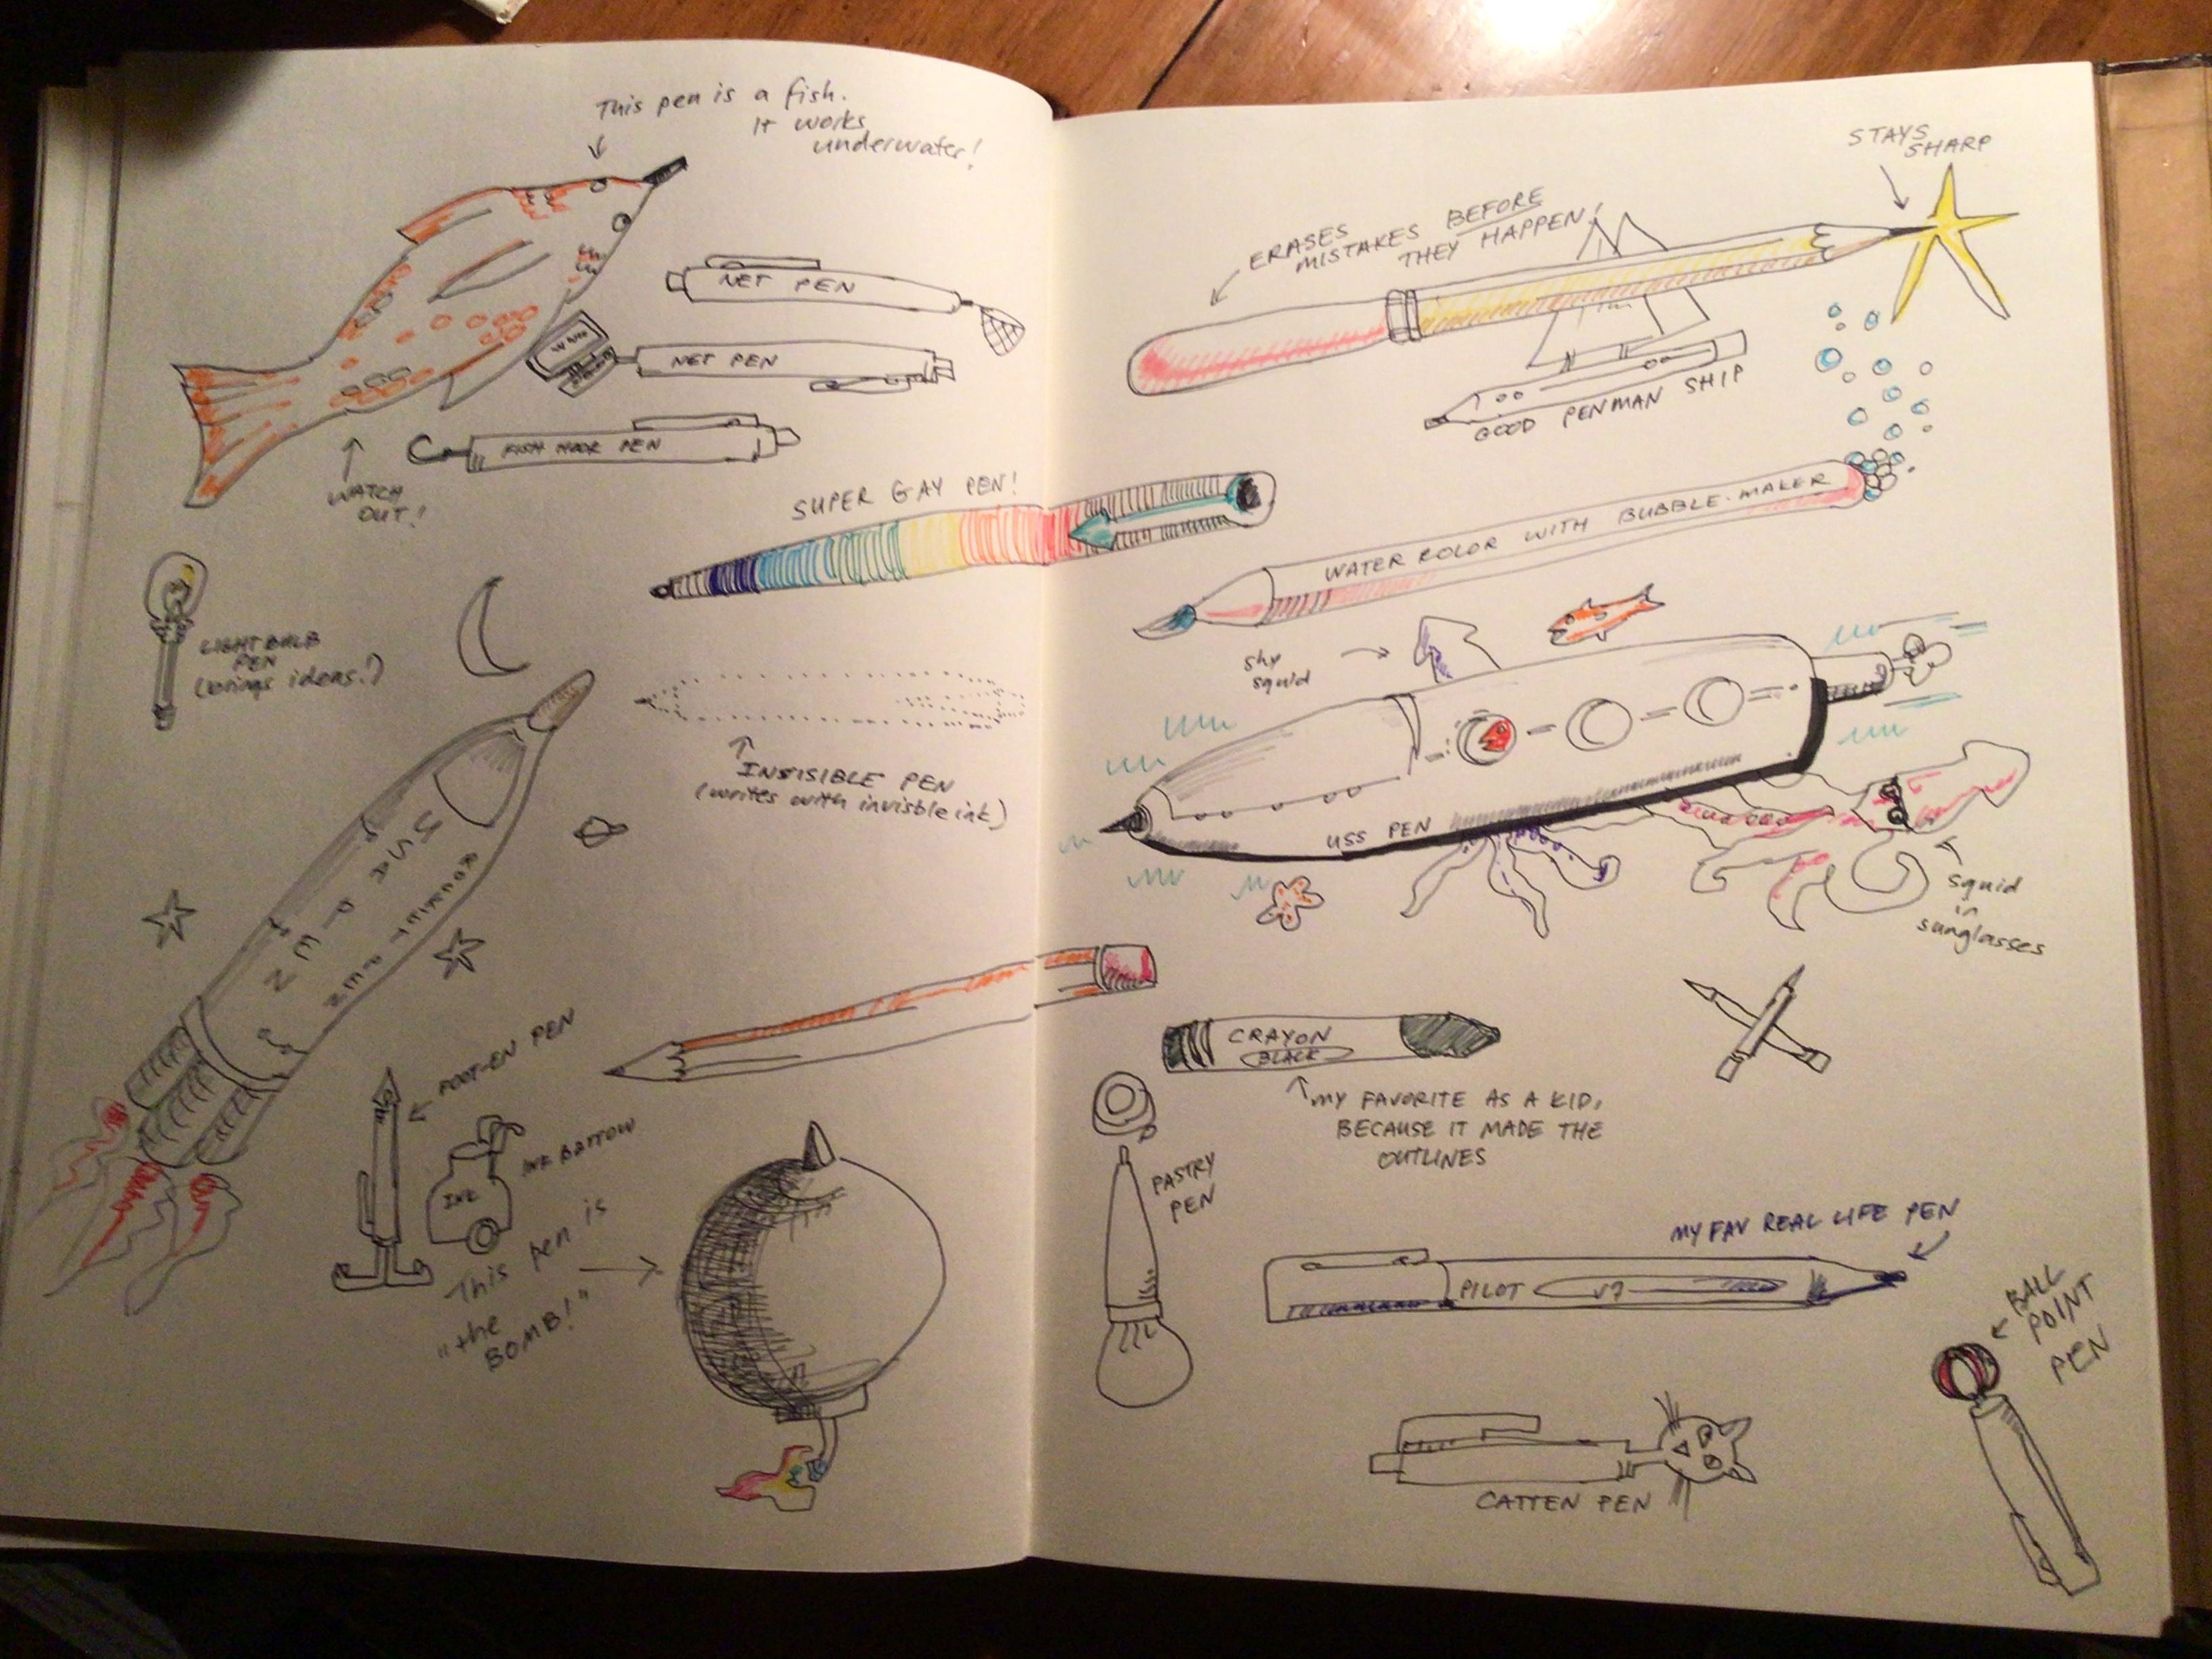 This pen is a fish.
It works
underwater!
NET PEN
NET PEN
FISH HOOK PEN
WATCH
OUT!
SUPER GAY PEN!
LIGHT BULB
PEN
(brings ideas!)
INVISIBLE PEN
(writes with invisble ink)
USA PEN
ROCKET PEN
FOOT-EN PEN
INK
INK BATTOW
This pen is
"the
BOMB!"
STAYS
SHARP
ERASES
MISTAKES BEFORE
THEY HAPPEN!
GOOD PENMAN SHIP
WATER COLOR WITH BUBBLE-MAKER
shy
squid
USS PEN
squid
in
sunglasses
CRAYON
BLACK
MY FAVORITE AS A KID,
BECAUSE IT MADE THE
OUTLINES
PASTRY
PEN
MY FAV REAL LIFE PEN
PILOT V7
BALL
POINT
PEN
CATTEN PEN